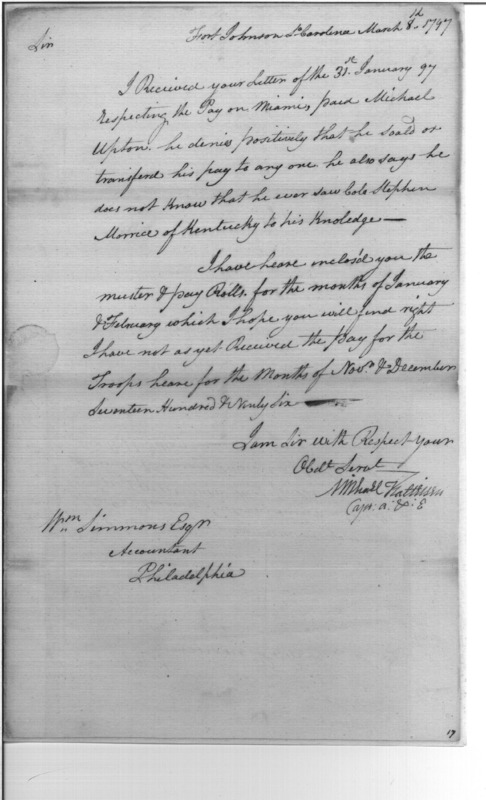 Fort Johnson So Carolina March 8th 1797
Sir
I Recieved your Letter of the 31st January 97
Respecting the Pay on Miami, paid Michael
Upton. he denies positively that he soald or
transferd his pay to any one he also says he
does not Know that he ever saw Colo Stephen
of Kentucky to his Knoledge —
I have heare inclos'd you the
muster & pay Rolls. for the months of January
& February which I hope you will find right
I have not as yet Received the pay for the
Troops heare for the Months of Novr & December
Seventeen Hundred & Ninty Six —
I am Sir with Respect your
Obdt Servt
Michael Kalteisen
Capt: a: & : E
Wm Simmons Esqr
Accountant
Philadelphia
17